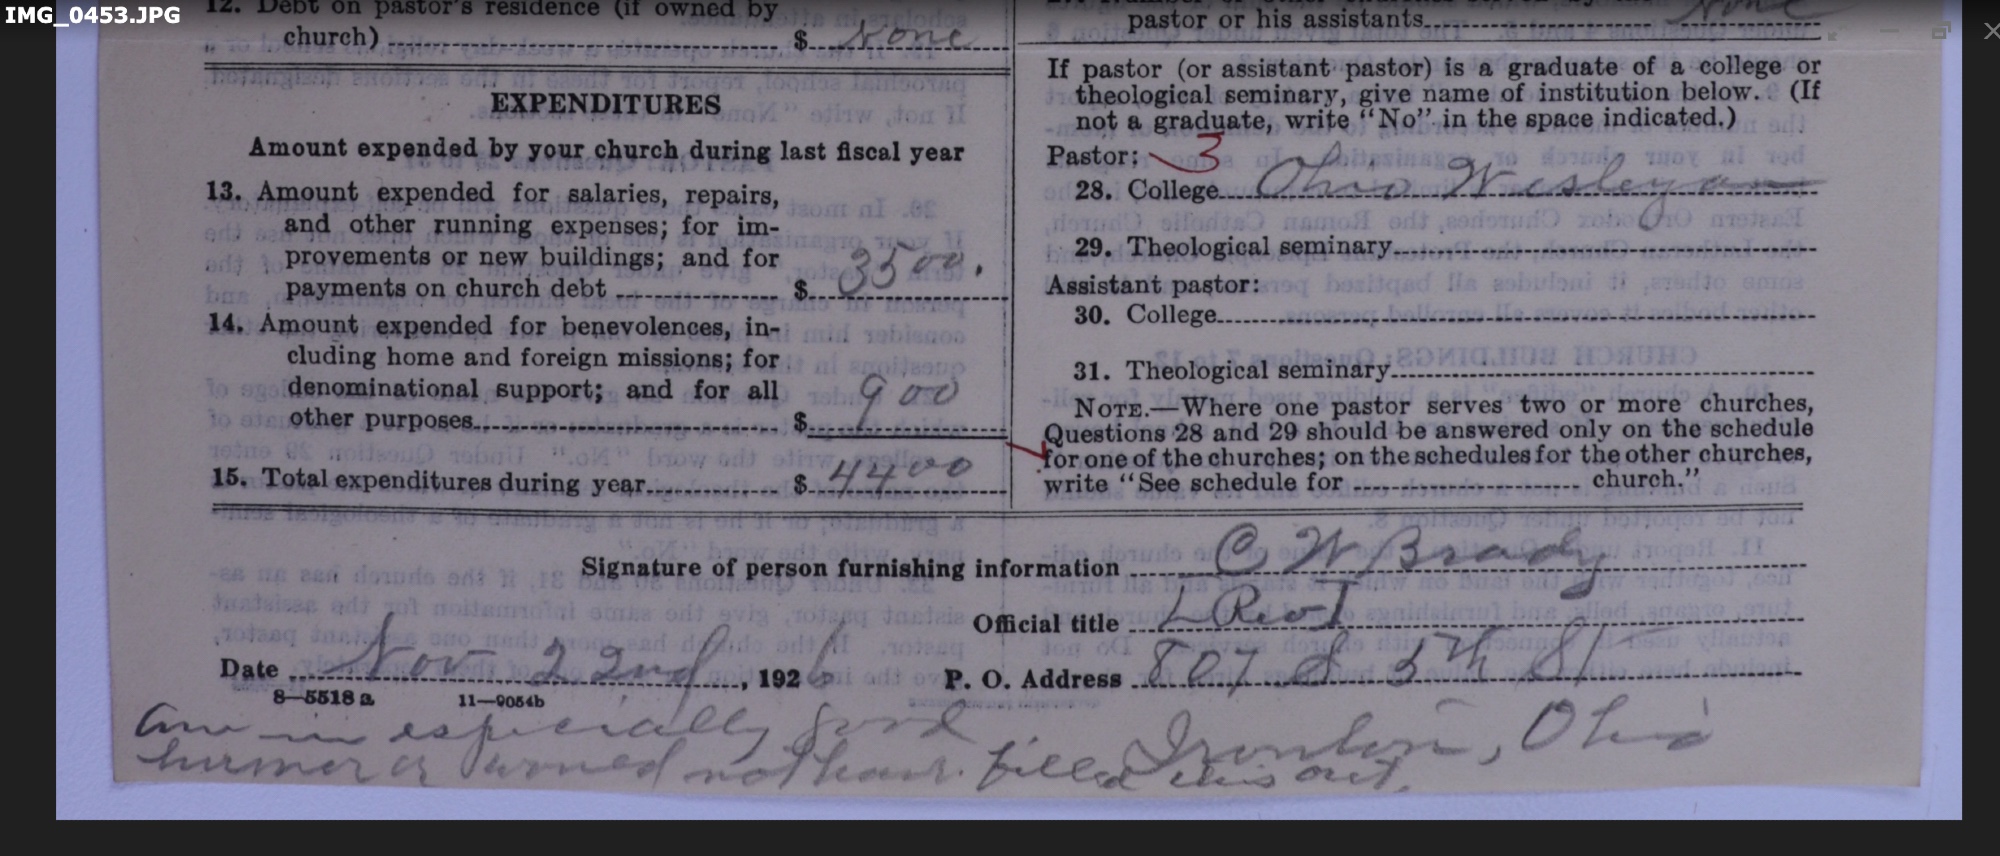 IMG_0453.JPG
12. Debt on pastor's residence (if owned by
church) $ None
EXPENDITURES
Amount expended by your church during last fiscal year
13. Amount expended for salaries, repairs,
and other running expenses; for im-
provements or new buildings; and for
payments on church debt $ 3500.
14. Amount expended for benevolences, in-
cluding home and foreign missions; for
denominational support; and for all
other purposes $ 900
15. Total expenditures during year $ 4400
pastor or his assistants None
If pastor (or assistant pastor) is a graduate of a college or
theological seminary, give name of institution below. (If
not a graduate, write "No" in the space indicated.)
Pastor: 3
28. College Ohio Wesleyan
29. Theological seminary
Assistant pastor:
30. College
31. Theological seminary
NOTE.—Where one pastor serves two or more churches,
Questions 28 and 29 should be answered only on the schedule
for one of the churches; on the schedules for the other churches,
write "See schedule for church."
Signature of person furnishing information C W Brady
Official title
Date Nov 22nd, 1926 P. O. Address 807 S 5th St
8—5518 a 11—9054b
Ironton, Ohio
am in especially good
humor or would not have filled this out.